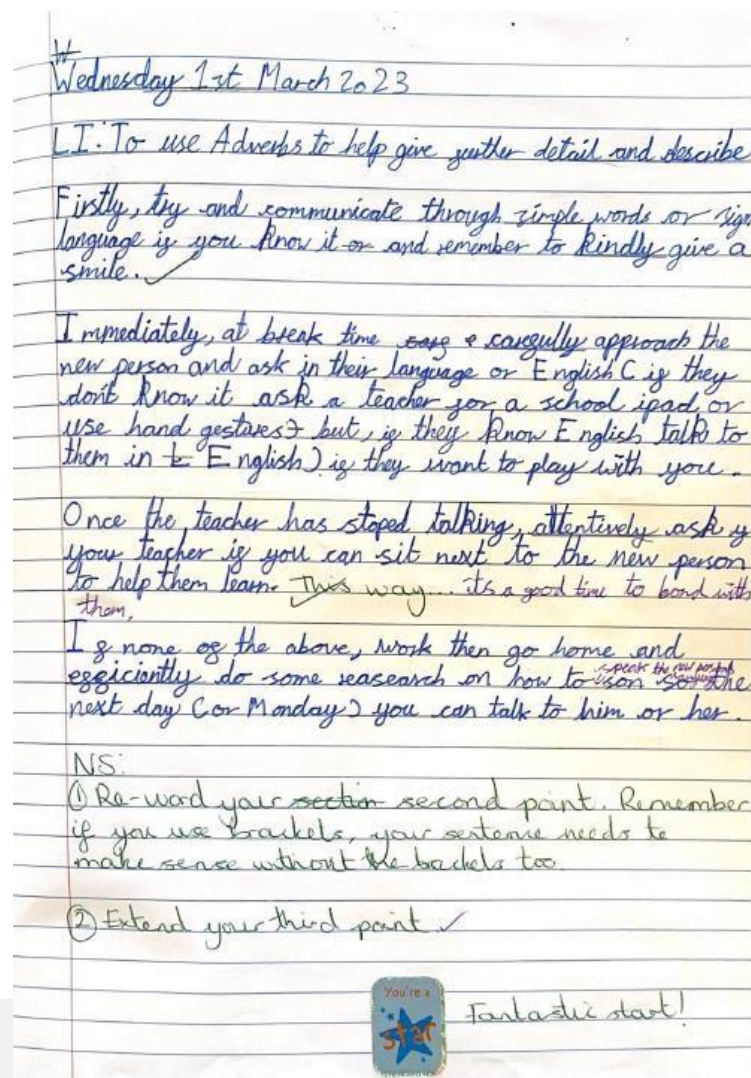 Wednesday 1st March 2023
LI: To use Adverbs to help give further detail and describe
Firstly, try and communicate through simple words or sign
language if you know it or and remember to kindly give a
smile.
Immediately, at break time carefully approach the
new person and ask in their language or English (if they
don't know it ask a teacher for a school ipad, or
use hand gestures but, if they know English talk to
them in English) if they want to play with you.
Once the teacher has stoped talking, attentively ask y
your teacher if you can sit next to the new person
to help them learn. This way... its a good time to bond with
them,
If none of the above, work then go home and
efficiently do some reasearch on how to speak the new persons
son so the
next day (or Monday) you can talk to him or her.
NS:
① Re-word your section second point. Remember
if you use brackets, your sentence needs to
make sense without the brackets too.
② Extend your third point ✓
You're a
star
Fantastic start!